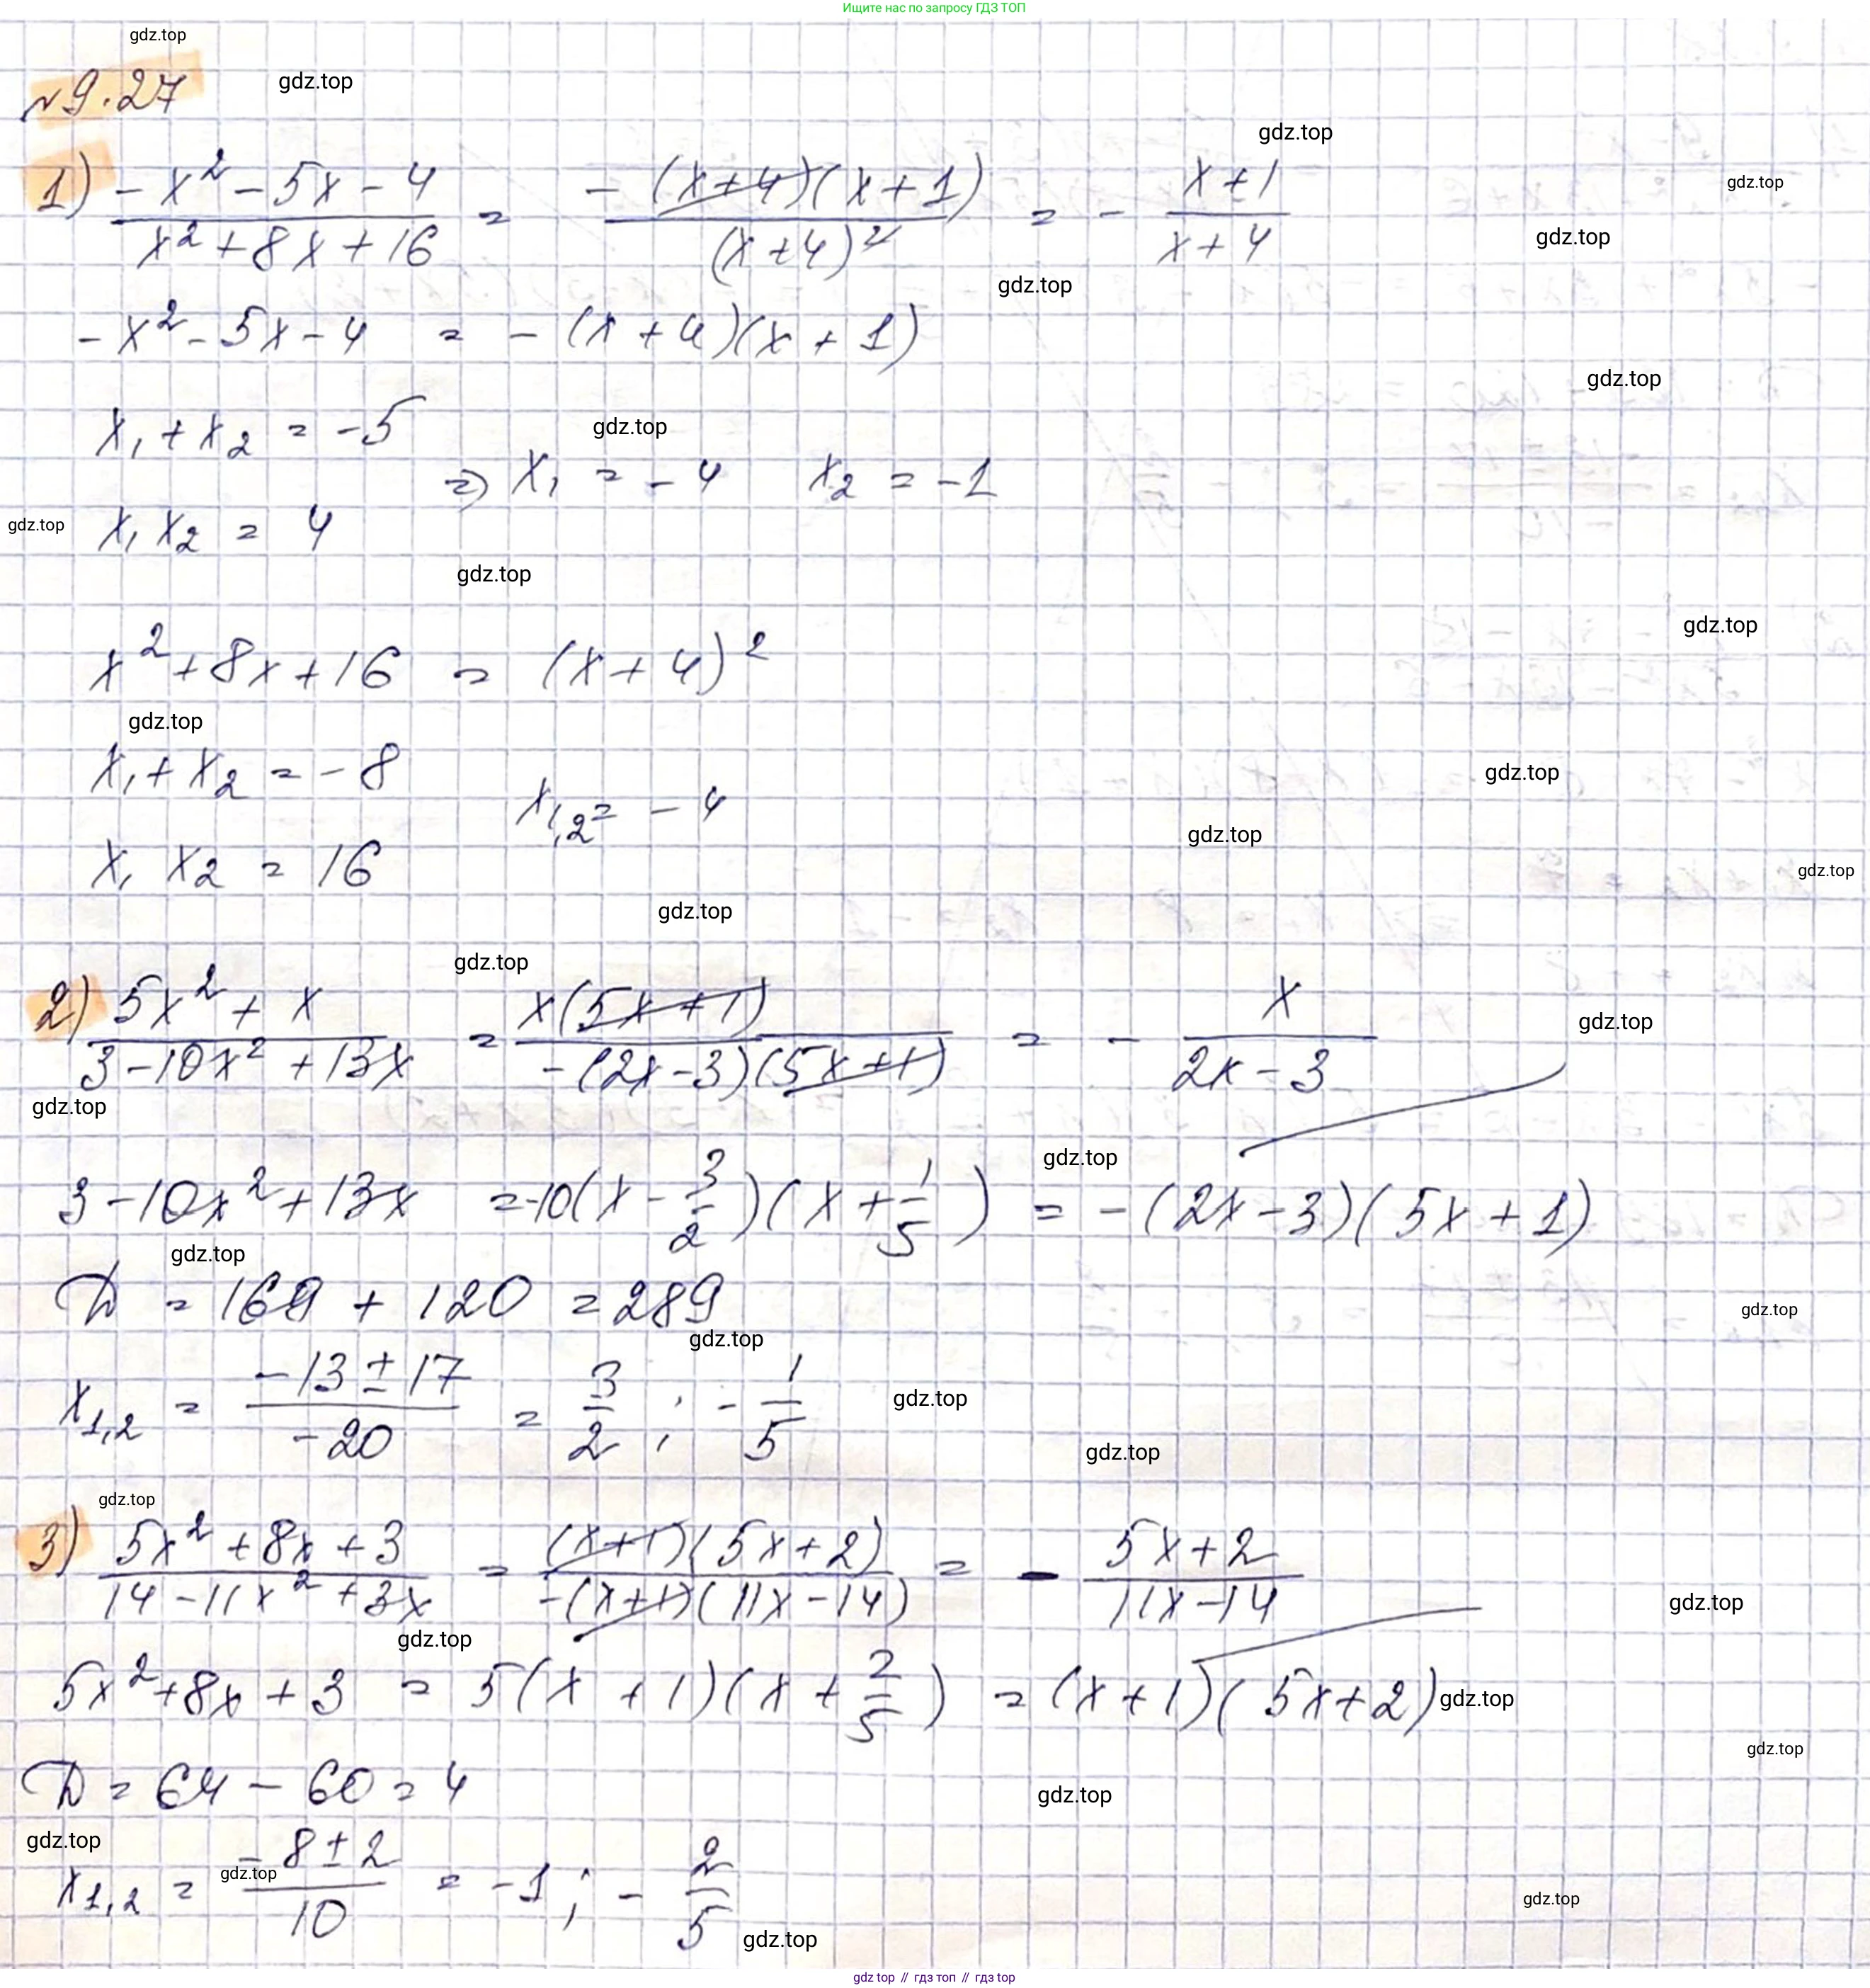 Ищите нас по запросу ГДЗ ТОП
gdz.top
№9.27
gdz.top
gdz.top
1) (-x² - 5x - 4)/(x² + 8x + 16) = -(x+4)(x+1)/(x+4)² = - (x+1)/(x+4)
gdz.top
gdz.top
gdz.top
-x² - 5x - 4 = -(x+4)(x+1)
gdz.top
x₁ + x₂ = -5
gdz.top
=> x₁ = -4 x₂ = -1
x₁ x₂ = 4
gdz.top
gdz.top
gdz.top
x² + 8x + 16 = (x+4)²
gdz.top
x₁ + x₂ = -8
gdz.top
x₁,₂ = -4
gdz.top
x₁ x₂ = 16
gdz.top
gdz.top
gdz.top
2) (5x² + x)/(3 - 10x² + 13x) = x(5x+1)/(-(2x-3)(5x+1)) = - x/(2x-3)
gdz.top
gdz.top
gdz.top
3 - 10x² + 13x = -10(x - 3/2)(x + 1/5) = -(2x-3)(5x+1)
gdz.top
D = 169 + 120 = 289
gdz.top
gdz.top
x₁,₂ = (-13 ± 17)/(-20) = 3/2 ; - 1/5
gdz.top
gdz.top
gdz.top
3) (5x² + 8x + 3)/(14 - 11x² + 3x) = (x+1)(5x+2)/(-(x+1)(11x-14)) = - (5x+2)/(11x-14)
gdz.top
gdz.top
5x² + 8x + 3 = 5(x + 1)(x + 2/5) = (x+1)(5x+2)
gdz.top
gdz.top
D = 64 - 60 = 4
gdz.top
gdz.top
x₁,₂ = (-8 ± 2)/10 = -1 ; - 2/5
gdz.top
gdz.top
gdz.top
gdz top // гдз топ // гдз top